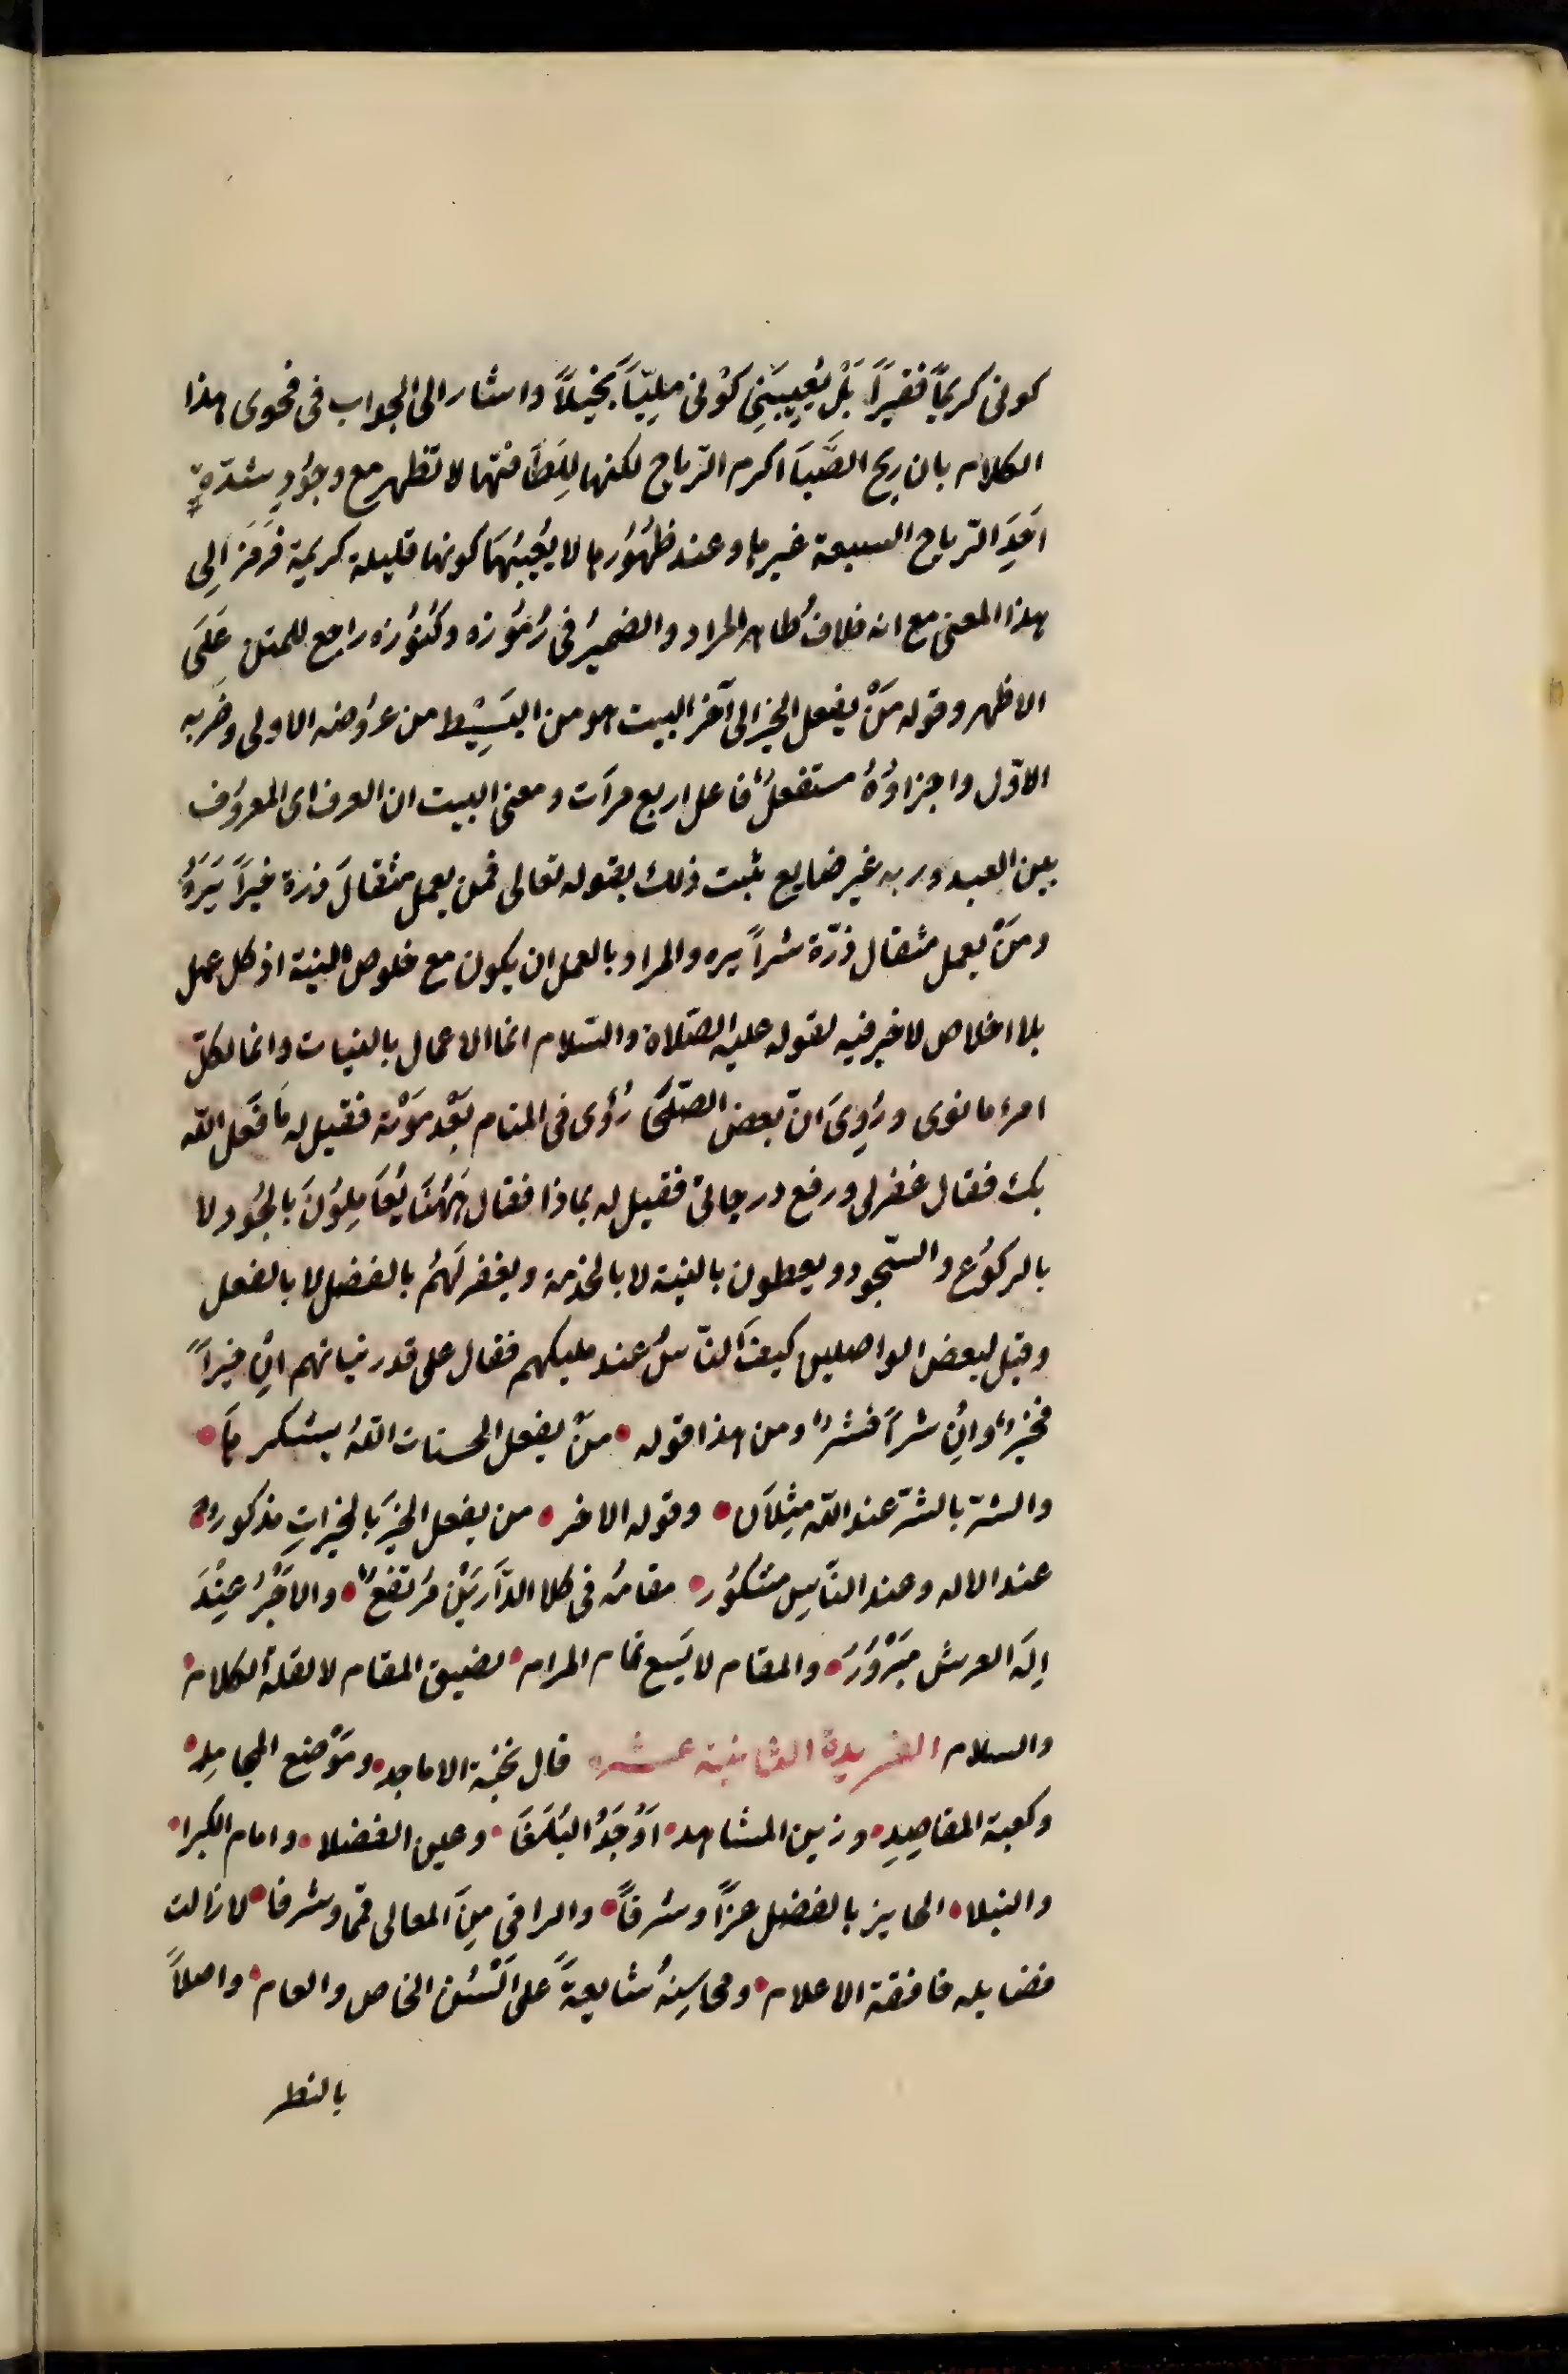 كونى كريماً فقيراً بَلْ يُعِيبُنِى كَوْنى مليّاً بَخيلاً واشار الى الجواب فى فحوى هذا
الكلام بان ريح الصَّبَا اكرم الرّياح لكنها لِلَطَافتها لا تظهر مع وجُودِ شدّةِ
احَدِ الرّياح السبعة غيرها وعند ظهُوُرها لا يُعِيبُهَا كونها قليلة كريمة فَرَمَز اِلى
هذا المعنى مع انه خلافُ ظاهر المراد والضميرُ فى رُمُوْزه وكُنُوْزه راجع للمتن عَلَى
الاظهر وقوله مَنْ يفعل الخير الى آخر البيت هو من البَسِيْط من عرُوضه الاولى وضربه
الاوّل واجزاؤهُ مستفعلُنْ فاعلن اربع مرّات ومعنى البيت ان العرف اى المعروُف
بين العبد وربه غير ضايع ثبت ذلك بقوله تعالى فمن يعمل مثقالَ ذرة خيراً يَرَهُ
ومَنْ يعمل مثقال ذرّة شراً يره والمراد بالعمل ان يكون مع خلوص النية اذ كل عمل
بلا اخلاص لا خير فيه لقوله عليه الصّلاة والسّلام انما الاعمال بالنيات وانما لكلّ
امرء ما نوى ورُوِىَ انّ بعض الصّلَحَا رُؤى فى المنام بَعْد مَوْته فقيل له مَا فَعَل الله
بك فقال غفر لى ورفع درجاتى فقيل له بماذا فقال هَهُنَا يُعَامِلُوْنَ بالجُود لا
بالركوُع والسّجود ويعطون بالنية لا بالخدمة ويغفر لَهُم بالفضل لا بالفعل
وقيل لبعض الواصلين كيفَ النّاسُ عند مليكهم فقال على قدر نياتهم انْ خيراً
فخيرٌ وانْ شراً فشرٌ ومن هذا قوله • منْ يفعل الحسنات اللهُ يشكرها •
والشر بالشرّ عند الله مِثْلاَن • وقوله الاخر • من يفعل الخيرَ بالخيراتِ مذكورٌ •
عند الاله وعند النّاسِ مشكوُر • مقامُه فى كلا الدَّارَيْنِ مُرتفعٌ • والاَجْرُ عِنْدَ
اِلَه العرش مَبْرُوْرُ • والمقام لا يَسَع تمام المرام • لضيق المقام لا لقلة الكلام •
والسلام الفريدة الثانية عشره قال نخبة الاماجد • ومَوْضع المحامِد •
وكعبة المقاصِدِ • وزين المشاهد • اَوْحَدُ البُلَغَا • وعين الفضلا • وامام الكبرا •
والنبلا • الحايز بالفضل عزّاً وشرفاً • والراقى مِنَ المعالى قمما وشرفا • لا زالت
فضايله خافقة الاعلام • ومحاسِنهُ شايعةً على اَلْسُن الخاص والعام • واصلاً
بالنظر